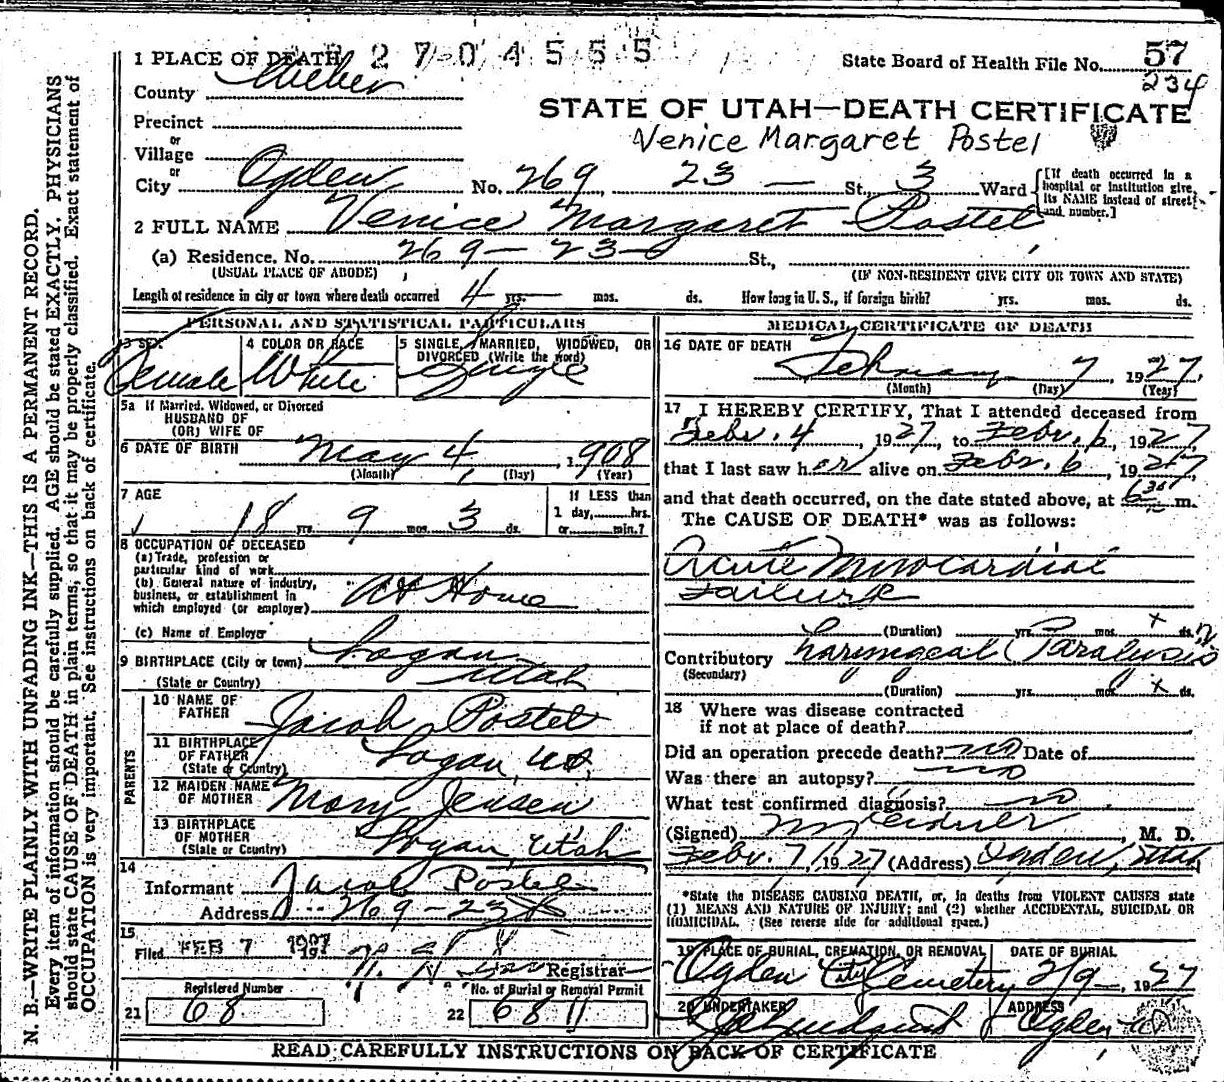 1 PLACE OF DEATH 2 7 0 4 5 5 5
State Board of Health File No. 57
234
County Weber
STATE OF UTAH—DEATH CERTIFICATE
Precinct
Venice Margaret Postel
or
Village
or
City Ogden No. 269, 23 — St. 3 Ward
[If death occurred in a
hospital or institution give
its NAME instead of street
and number.]
2 FULL NAME Venice Margaret Postel
(a) Residence. No. 269 — 23 St.,
(USUAL PLACE OF ABODE) (IF NON-RESIDENT GIVE CITY OR TOWN AND STATE)
Length of residence in city or town where death occurred 4 yrs. — mos. ds. How long in U. S., if foreign birth? yrs. mos. ds.
PERSONAL AND STATISTICAL PARTICULARS
3 SEX
Female
4 COLOR OR RACE
White
5 SINGLE, MARRIED, WIDOWED, OR
DIVORCED (Write the word)
Single
5a If Married, Widowed, or Divorced
HUSBAND OF
(OR) WIFE OF
6 DATE OF BIRTH May 4, 1908
(Month) (Day) (Year)
7 AGE
18 yrs. 9 mos. 3 ds.
If LESS than
1 day, hrs.
or min.?
8 OCCUPATION OF DECEASED
(a) Trade, profession or
particular kind of work
(b) General nature of industry,
business, or establishment in
which employed (or employer) At Home
(c) Name of Employer
9 BIRTHPLACE (City or town) Logan
(State or Country) Utah
PARENTS
10 NAME OF
FATHER Jacob Postel
11 BIRTHPLACE
OF FATHER
(State or Country) Logan, Ut.
12 MAIDEN NAME
OF MOTHER Mary Jensen
13 BIRTHPLACE
OF MOTHER
(State or Country) Logan, Utah
14
Informant Jacob Postel
Address 269 - 23 St
15
Filed FEB 7 Registrar
Registered Number
21 68
No. of Burial or Removal Permit
22 6811
MEDICAL CERTIFICATE OF DEATH
16 DATE OF DEATH
February 7, 1927
(Month) (Day) (Year)
17 I HEREBY CERTIFY, That I attended deceased from
Febr. 4, 1927, to Febr. 6, 1927
that I last saw her alive on Febr. 6, 1927
and that death occurred, on the date stated above, at 6 30 m.
The CAUSE OF DEATH* was as follows:
Acute Myocardial
Failure
(Duration) yrs. mos. ds.
Contributory Laryngeal Paralysis
(Secondary)
(Duration) yrs. mos. ds.
18 Where was disease contracted
if not at place of death?
Did an operation precede death? no Date of
Was there an autopsy? no
What test confirmed diagnosis? no
(Signed) , M. D.
Febr. 7, 1927 (Address) Ogden, Utah
*State the DISEASE CAUSING DEATH, or, in deaths from VIOLENT CAUSES state
(1) MEANS AND NATURE OF INJURY; and (2) whether ACCIDENTAL, SUICIDAL OR
HOMICIDAL. (See reverse side for additional space.)
19 PLACE OF BURIAL, CREMATION, OR REMOVAL
Ogden City Cemetery
DATE OF BURIAL
2/9, 1927
20 UNDERTAKER
ADDRESS
Ogden, U
READ CAREFULLY INSTRUCTIONS ON BACK OF CERTIFICATE
N. B.—WRITE PLAINLY WITH UNFADING INK—THIS IS A PERMANENT RECORD.
Every item of information should be carefully supplied. AGE should be stated EXACTLY. PHYSICIANS
should state CAUSE OF DEATH in plain terms, so that it may be properly classified. Exact statement of
OCCUPATION is very important. See instructions on back of certificate.